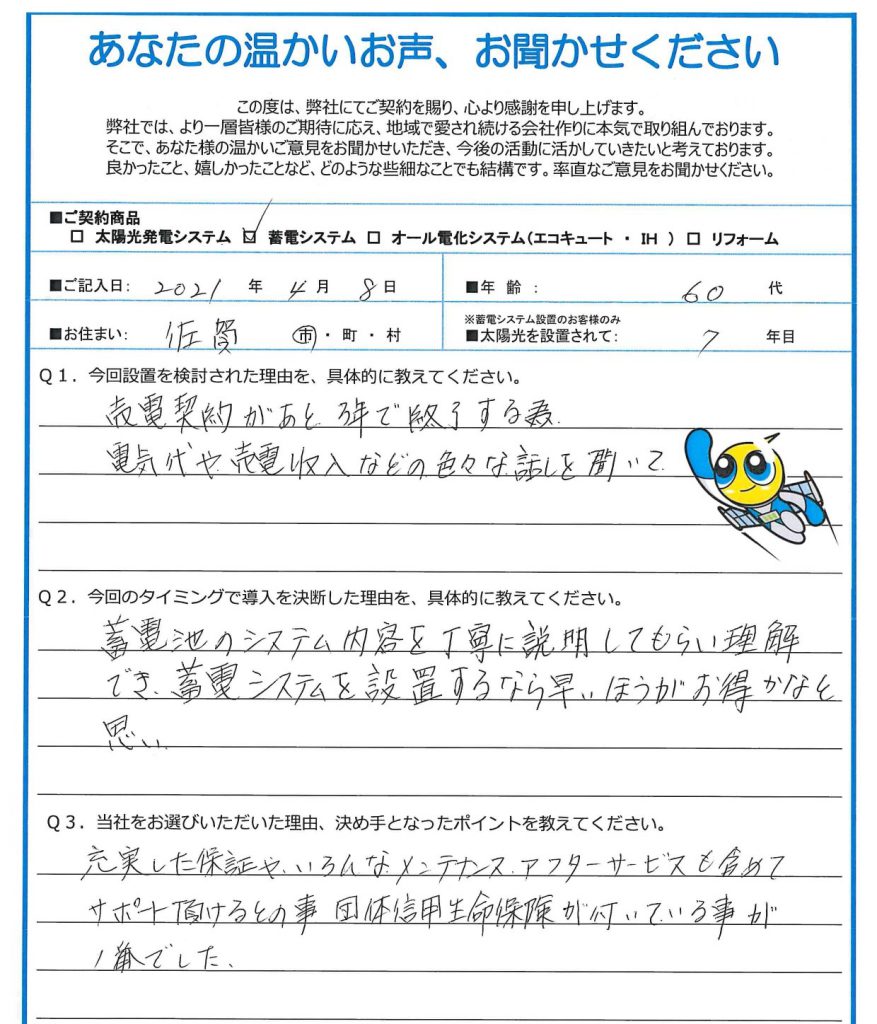 あなたの温かいお声、お聞かせください
この度は、弊社にてご契約を賜り、心より感謝を申し上げます。
弊社では、より一層皆様のご期待に応え、地域で愛され続ける会社作りに本気で取り組んでおります。
そこで、あなた様の温かいご意見をお聞かせいただき、今後の活動に活かしていきたいと考えております。
良かったこと、嬉しかったことなど、どのような些細なことでも結構です。率直なご意見をお聞かせください。
■ご契約商品
□ 太陽光発電システム ☑ 蓄電システム □ オール電化システム(エコキュート ・ IH ) □ リフォーム
■ご記入日: 2021 年 4 月 8 日 ■年 齢 : 60 代
※蓄電システム設置のお客様のみ
■お住まい: 佐賀 市 ・ 町 ・ 村 ■太陽光を設置されて: 7 年目
Q1. 今回設置を検討された理由を、具体的に教えてください。
売電契約があと、3年で終了する為、
電気代や、売電収入などの色々な話しを聞いて
Q2. 今回のタイミングで導入を決断した理由を、具体的に教えてください。
蓄電池のシステム内容を丁寧に説明してもらい理解
でき、蓄電システムを設置するなら早いほうがお得かなと
思い、
Q3. 当社をお選びいただいた理由、決め手となったポイントを教えてください。
充実した保証や、いろんなメンテナンス、アフターサービスも含めて
サポート頂けるとの事 団体信用生命保険が付いている事が
1番でした。